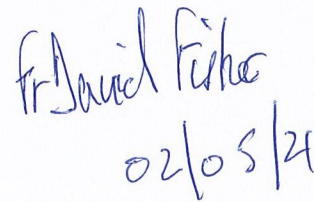 Fr David Fisher
02/05/21